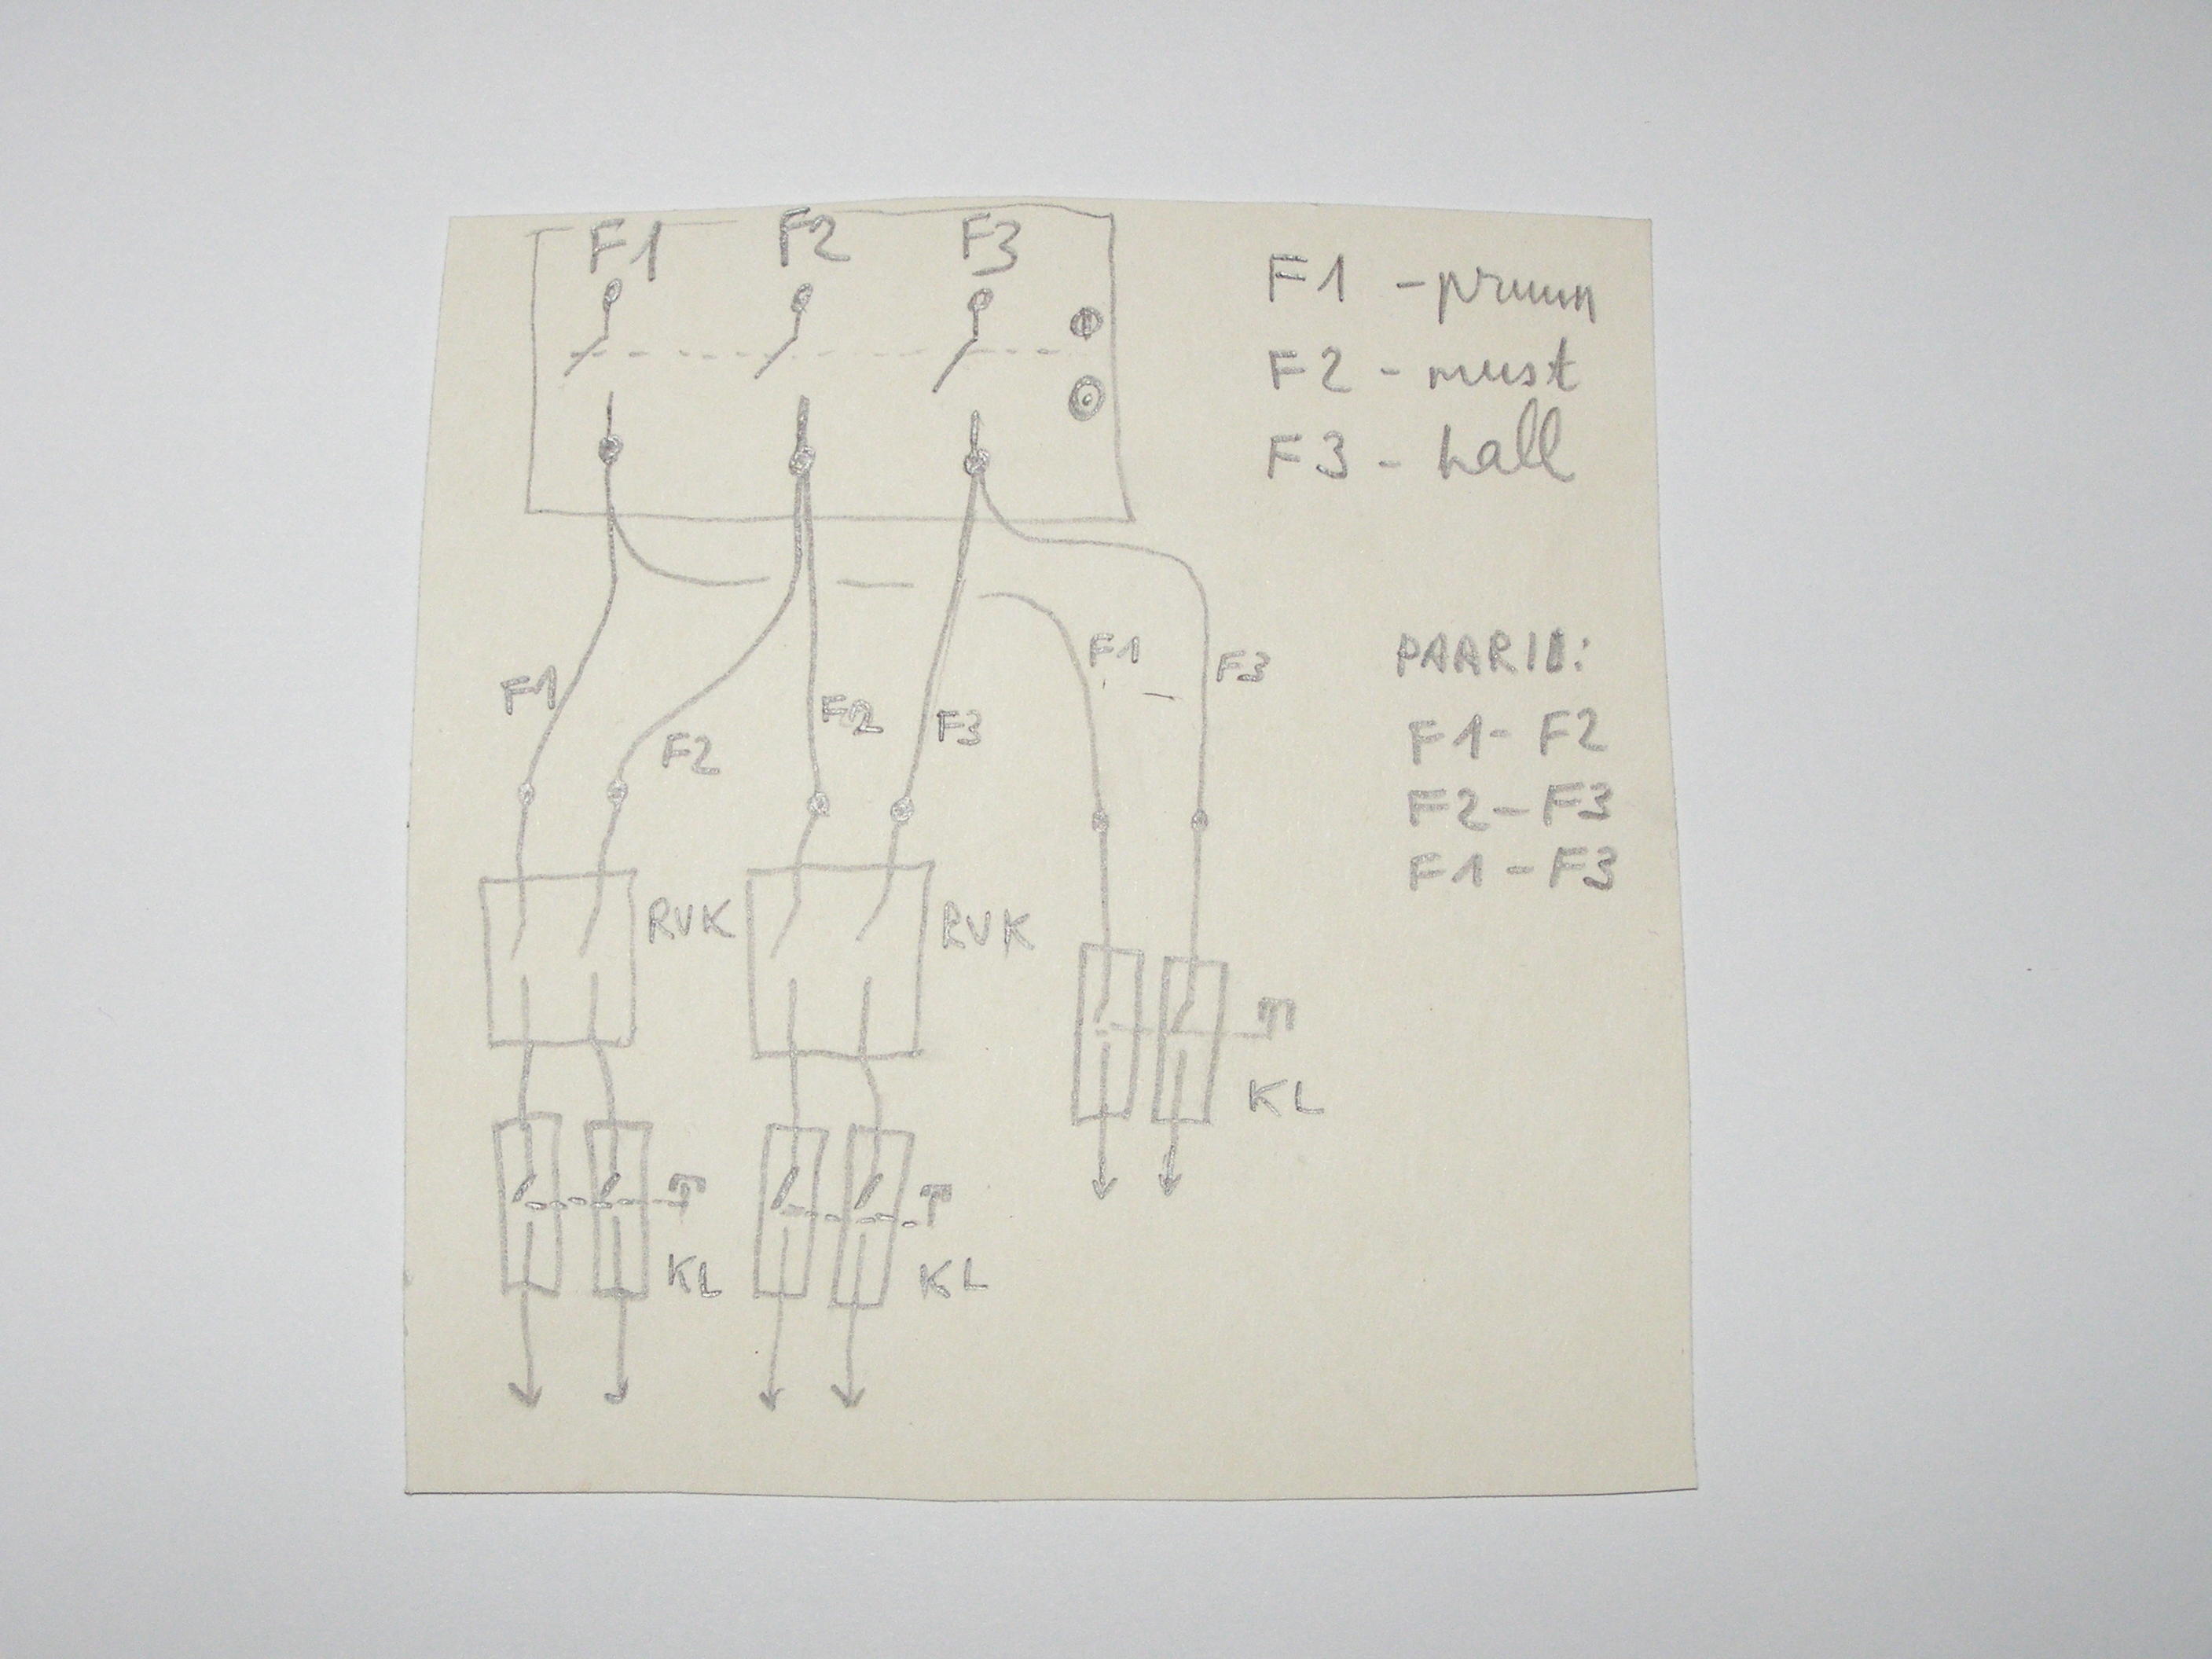 F1 F2 F3
F1 - pruun
F2 - must
F3 - hall
F1 F2 F2 F3 F1 F3
PAARID:
F1 - F2
F2 - F3
F1 - F3
RVK RVK
KL KL KL